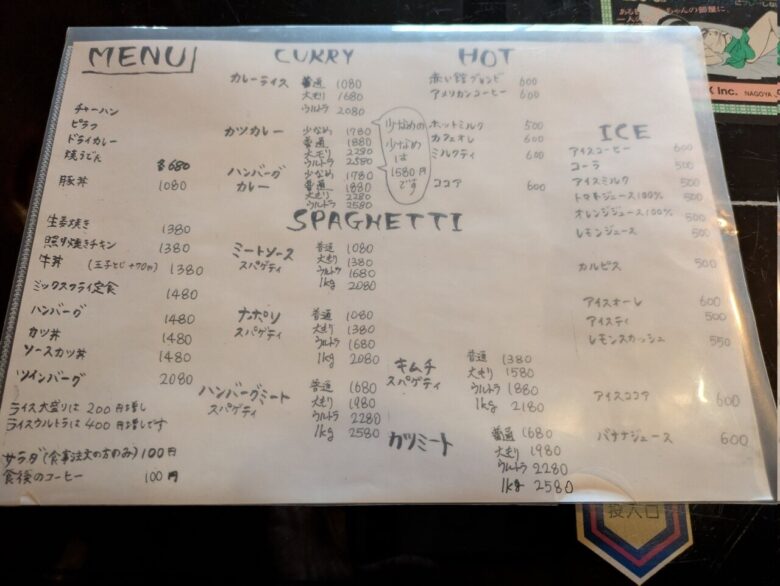 MENU
チャーハン
ピラフ
ドライカレー
焼うどん 680
豚丼 1080
生姜焼き 1380
照り焼きチキン 1380
牛丼 (玉子とじ+70円) 1380
ミックスフライ定食 1480
ハンバーグ 1480
カツ丼 1480
ソースカツ丼 1480
ツインバーグ 2080
ライス大盛りは200円増し
ライスウルトラは400円増しです
サラダ(食事注文の方のみ)100円
食後のコーヒー 100円
CURRY
カレーライス 普通 1080
大モリ 1680
ウルトラ 2080
カツカレー 少なめ 1780
普通 1880
大モリ 2280
ウルトラ 2580
ハンバーグ カレー 少なめ 1780
普通 1880
大もり 2280
ウルトラ 2580
少なめの
少なめ
は
1580円
です
SPAGHETTI
ミートソース 普通 1080
スパゲティ 大もり 1380
ウルトラ 1680
1kg 2080
ナポリ 普通 1080
スパゲティ 大もり 1380
ウルトラ 1680
1kg 2080
ハンバーグミート 普通 1680
スパゲティ 大もり 1980
ウルトラ 2280
1kg 2580
キムチ 普通 1380
スパゲティ 大もり 1580
ウルトラ 1880
1kg 2180
カツミート 普通 1680
大もり 1980
ウルトラ 2280
1kg 2580
HOT
600
アメリカンコーヒー 600
ホットミルク 500
カフェオレ 600
ミルクティ 600
ココア 600
ICE
アイスコーヒー 600
コーラ 500
アイスミルク 500
トマトジュース100% 500
オレンジジュース100% 500
レモンジュース 500
カルピス 500
アイスオーレ 600
アイスティ 500
レモンスカッシュ 550
アイスココア 600
バナナジュース 600
Inc. NAGOYA
投入口